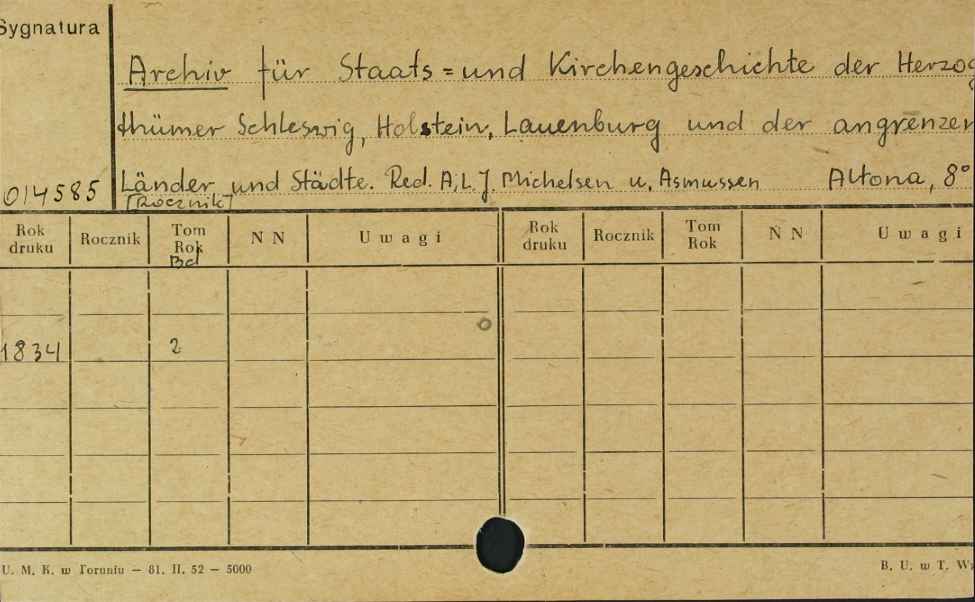 Sygnatura
Archiv für Staats=und Kirchengeschichte der Herzog
thümer Schleswig, Holstein, Lauenburg und der angrenzen
014585 Länder und Städte. Red. A. L. J. Michelsen u. Asmussen Altona, 8°
[Rocznik]
Rok druku Rocznik Tom Rok Bd N N Uwagi Rok druku Rocznik Tom Rok N N Uwagi
1834 2
U. M. K. w Toruniu — 81. II. 52 — 5000 B. U. w T. W